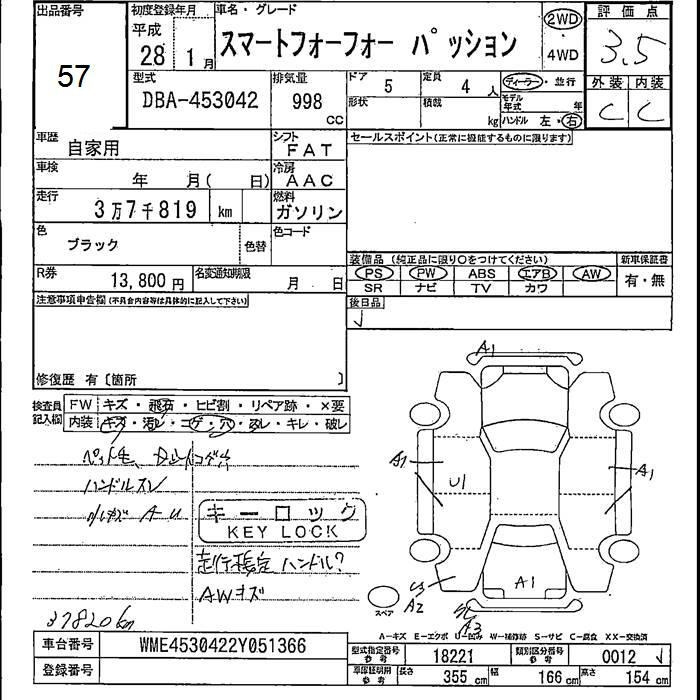 出品番号
57
初度登録年月
平成
28年
1月
車名・グレード
スマートフォーフォー パッション
2WD
・
4WD
評価点
3.5
外装 内装
C C
型式
DBA-453042
排気量
998
CC
ドア
5
定員
4人
形状
積載
kg
ディーラー・並行
モデル年式 年
ハンドル 左・右
車歴
自家用
シフト
FAT
車検
年 月( 日)
冷房
AAC
走行
3万7千819 km
燃料
ガソリン
色
ブラック
色替
色コード
R券
13,800円
名変通知期限
月 日
セールスポイント(正常に機能するものに限ります)
装備品 (純正品に限り○をつけてください)
新車保証書
PS PW ABS エアB AW
SR ナビ TV カワ
有・無
注意事項申告欄(不具合内容等は具体的に記入して下さい)
後日品
修復歴 有〔箇所 〕
検査員記入欄
FW キズ・飛石・ヒビ割・リペア跡・×要
内装 キズ・汚レ・コゲ・穴・スレ・キレ・破レ
ハンドルスレ
小キズ A U
キーロック
KEY LOCK
走行推定 ハンドル?
AWキズ
37820km
A1
A1
U1
A1
A1
A2
A3
スペア
A-キズ E-エクボ U-凹み W-補修跡 S-サビ C-腐食 XX-交換済
車台番号
WME4530422Y051366
登録番号
型式指定番号
参考
18221
類別区分番号
参考
0012
車庫証明用
参考
長さ
355 cm
幅
166 cm
高さ
154 cm